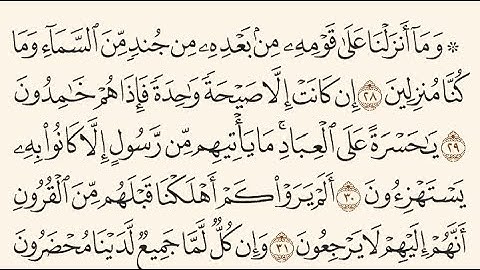 ۞ وَمَآ أَنزَلْنَا عَلَىٰ قَوْمِهِۦ مِنۢ بَعْدِهِۦ مِن جُندٍ مِّنَ ٱلسَّمَآءِ وَمَا
كُنَّا مُنزِلِينَ ٢٨ إِن كَانَتْ إِلَّا صَيْحَةً وَٰحِدَةً فَإِذَا هُمْ خَٰمِدُونَ
٢٩ يَٰحَسْرَةً عَلَى ٱلْعِبَادِ ۚ مَا يَأْتِيهِم مِّن رَّسُولٍ إِلَّا كَانُوا۟ بِهِۦ
يَسْتَهْزِءُونَ ٣٠ أَلَمْ يَرَوْا۟ كَمْ أَهْلَكْنَا قَبْلَهُم مِّنَ ٱلْقُرُونِ
أَنَّهُمْ إِلَيْهِمْ لَا يَرْجِعُونَ ٣١ وَإِن كُلٌّ لَّمَّا جَمِيعٌ لَّدَيْنَا مُحْضَرُونَ